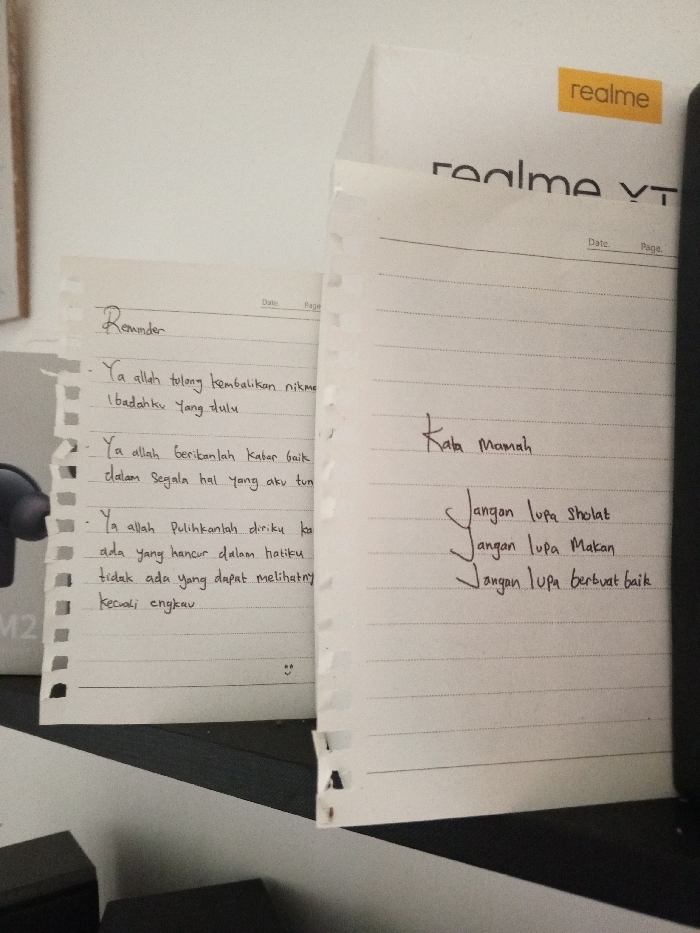 realme
realme XT
Date. Page.
Reminder
- Ya allah tolong kembalikan
Ibadahku yang dulu
- Ya allah berikanlah kabar baik
dalam segala hal yang aku
- Ya allah Pulihkanlah diriku
ada yang hancur dalam hatiku
tidak ada yang dapat
kecuali engkau
Date. Page.
Kata Mamah
Jangan lupa sholat
Jangan lupa Makan
Jangan lupa berbuat baik
M2